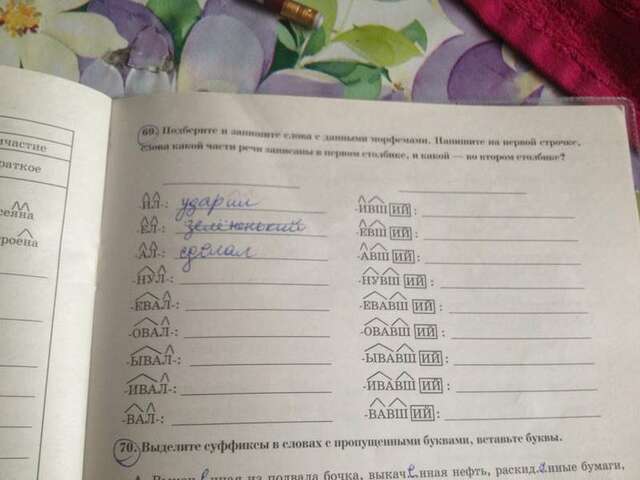 69. Подберите и запишите слова с данными морфемами. Напишите на первой строчке,
слова какой части речи записаны в первом столбике, и какой — во втором столбике?
частие
раткое
сеяна
троена
-ИЛ-: ударил
-ЕЛ-: зелененький
-АЛ-: сделал
-НУЛ-:
-ЕВАЛ-:
-ОВАЛ-:
-ЫВАЛ-:
-ИВАЛ-:
-ВАЛ-:
-ИВШ ИЙ :
-ЕВШ ИЙ :
-АВШ ИЙ :
-НУВШ ИЙ :
-ЕВАВШ ИЙ :
-ОВАВШ ИЙ :
-ЫВАВШ ИЙ :
-ИВАВШ ИЙ :
-ВАВШ ИЙ :
70. Выделите суффиксы в словах с пропущенными буквами, вставьте буквы.
из подвала бочка, выкач е нная нефть, раскид а нные бумаги,